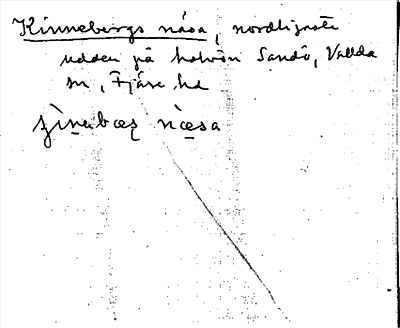 Kinnebergs näsa, nordligaste
udden på halvön Sandö, Vallda
sn, Fjäre hd
næsa